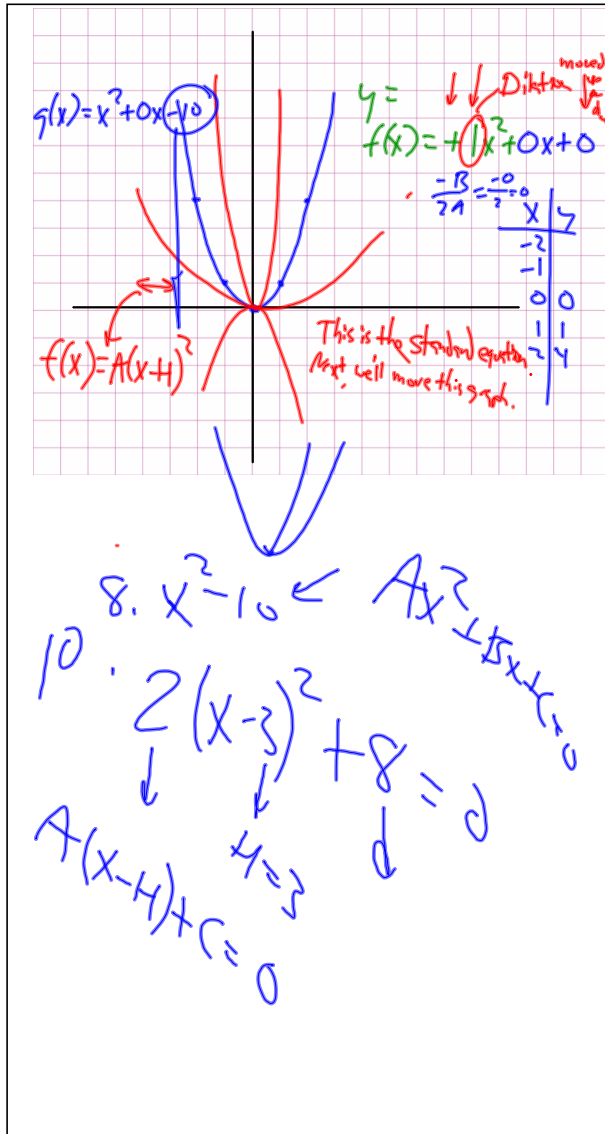 g(x)=x²+0x-10
y=
Dilation
moved
f(x)=+1x²+0x+0
-B/2A = -0/2 = 0
x y
-2
-1
0 0
1 1
2 4
f(x)=A(x-H)²
This is the standard equation.
Next, we'll move this graph.
8. x²-10 ←
Ax²+Bx+C=0
10. 2(x-3)²+8=0
A(x-H)+C=0
H=3